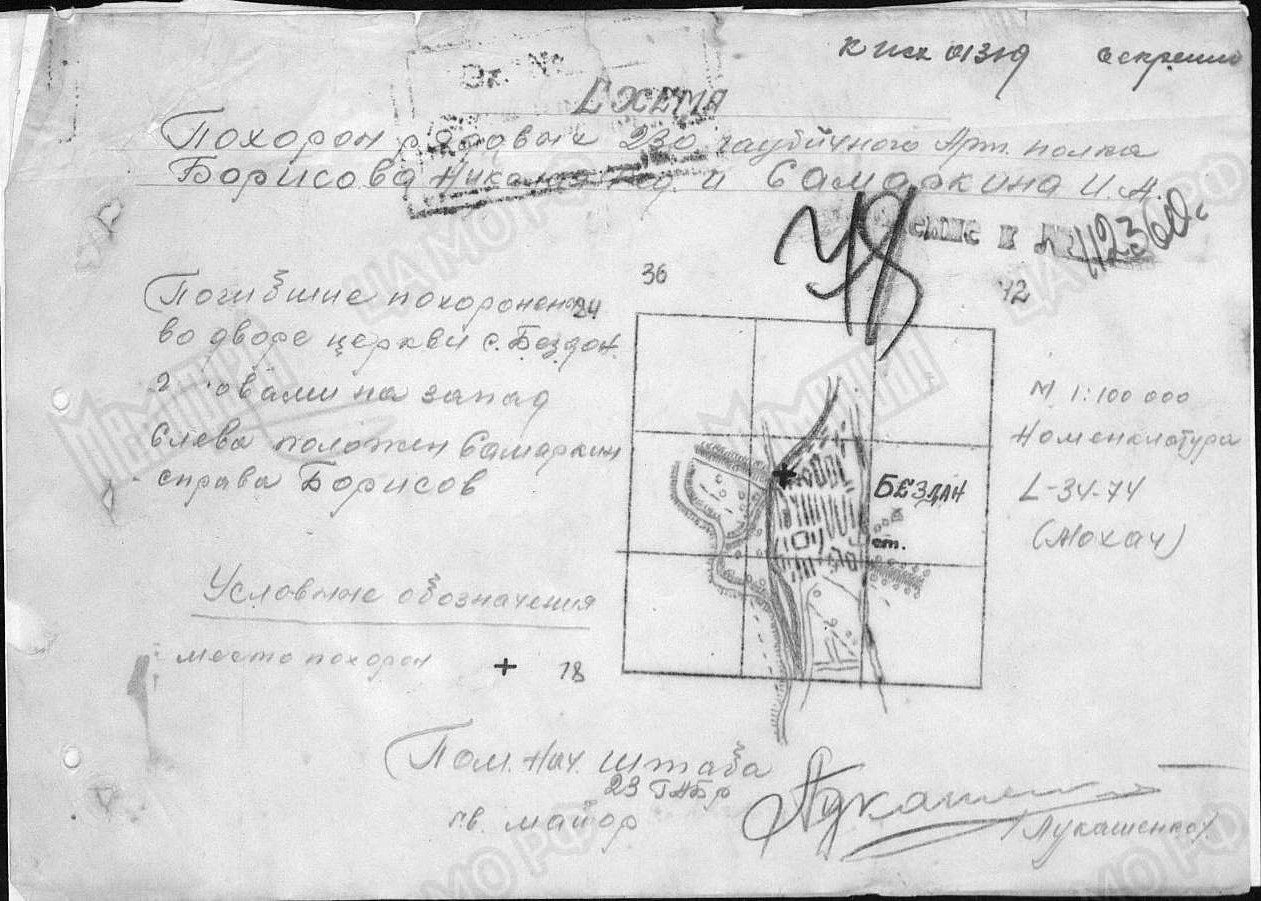 К исх 01319
СХЕМА
Похорон рядовых 230 гаубичного Арт. полка
Борисова и Самаркина И.А.
48
ение к № 12360с
36
42
24
Погибшие похоронены
во дворе церкви с. Бездан.
овами на запад
Слева положен Самаркин
справа Борисов
М 1:100 000
Номенклатура
L-34-74
(Мохач)
БЕЗДАН
ст.
Условные обозначения
место похорон +
18
Пом. Нач. штаба
23 ГАБр
гв. майор
(Лукашенко)
МЕМОРИАЛ
ЦАМО РФ